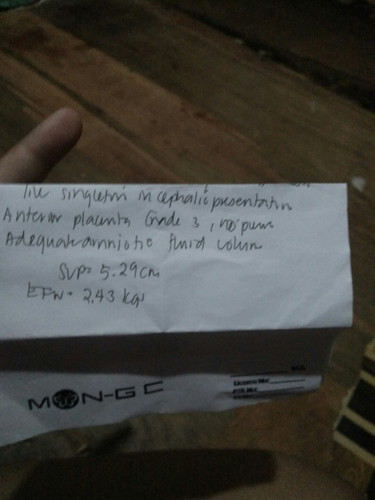 singleton in cephalic presentation
Anterior placenta Grade 3, no previa
Adequate amniotic fluid volume
SVP= 5.29cm
EFW= 2.43 kgs
MON-GC
M.D.
License No.
PTR No.